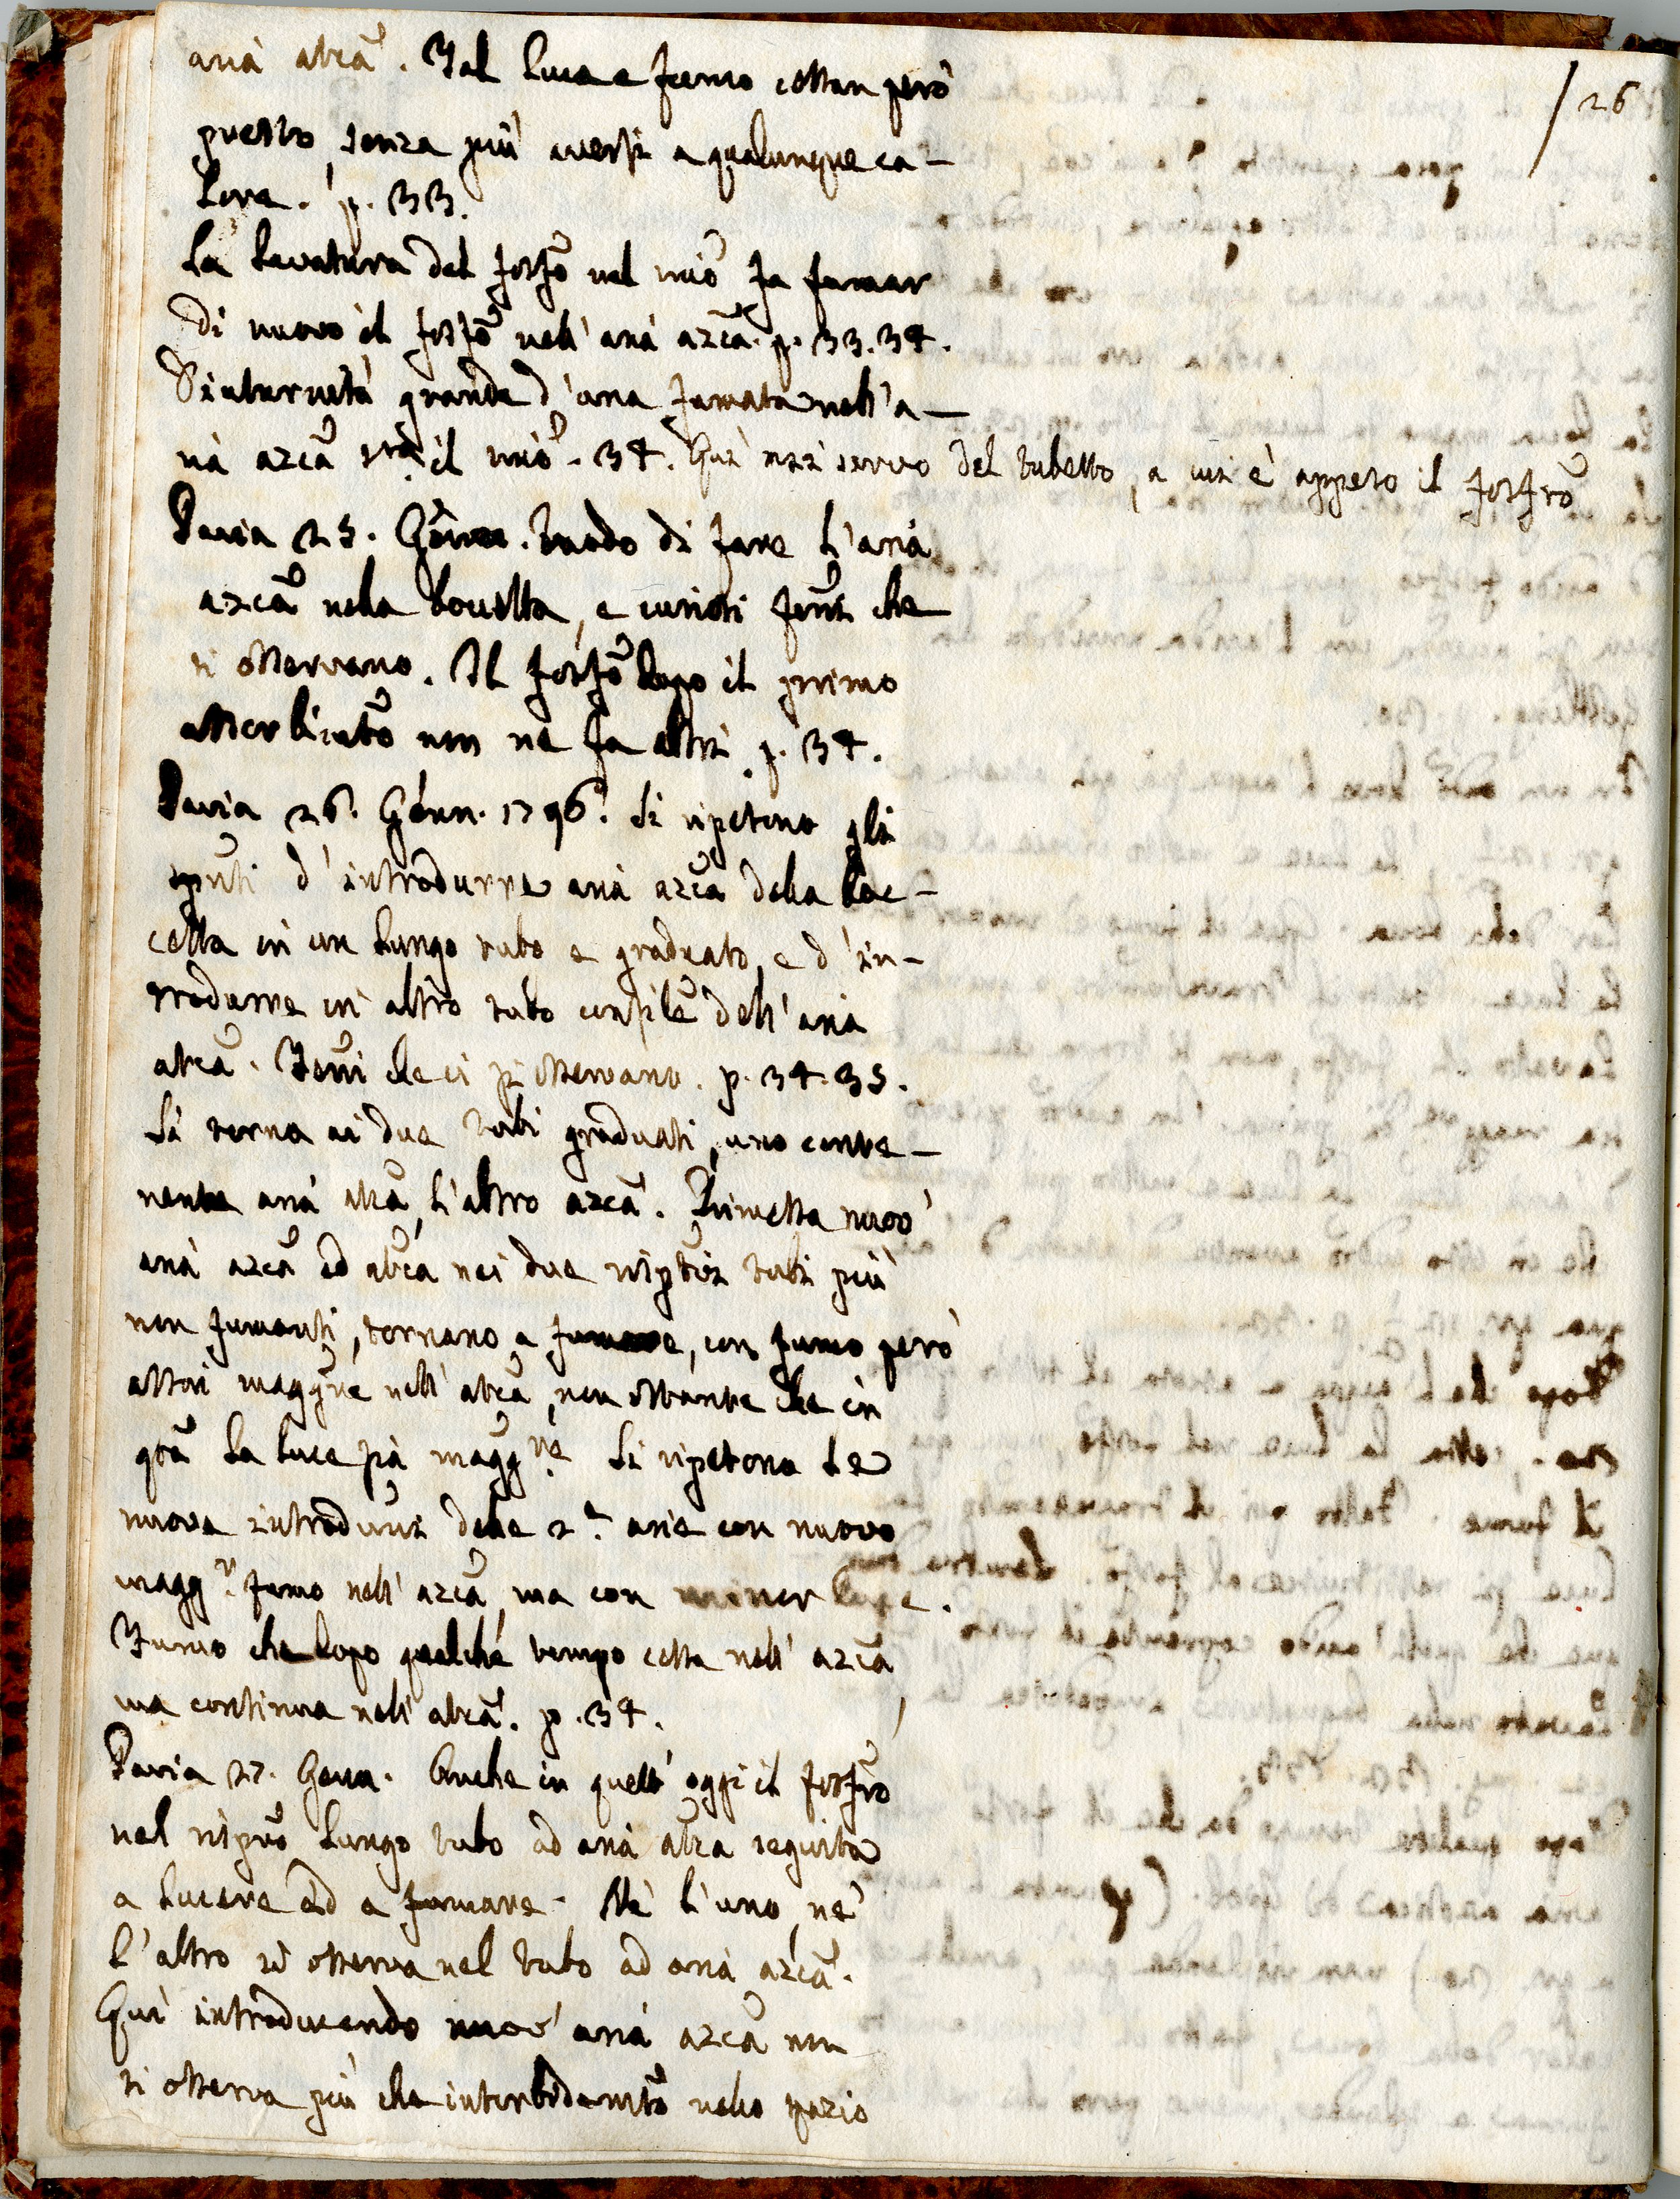 26
aria atca. Tal luce e fumo cessan però
presto, senza più aversi a qualunque ca-
lore. p. 33.
La levatura del fosfo nel mio fa fumar
di nuovo il fosfo nell'aria azca. p. 33. 34.
Diuturnità grande d'una fumata nell'a-
ria azca il mio. 34. Qui mi servo del tubetto, a cui è appeso il fosfro
Pavia 25. Genn. Modo di fare l'aria
azca nella boccetta, e curiosi feni che
si osservano. Il fosfo dopo il primo
assorbimto non ne fa altri. p. 34.
Pavia 26. Genn. 1796. Si ripetono gli
sputi d'introdurre aria azca della boc-
cetta in un lungo tubo e graduato, e d'in-
trodurre in altro tubo consile dell'aria
atca. Feni che ci si osservano. p. 34. 35.
Si torna ai due tubi graduati, uno conte-
nente aria atca, l'altro azca. Rimessa nuov'
aria azca ed atca nei due rispvi tubi più
non fumanti, tornano a fumare, con fumo però
assai maggre nell'atca, non ostante che in
qta la luce sia maggre. Si ripetono le
nuove introduni delle 2e arie con nuovo
maggr fumo nell'azca, ma con minor luce.
Fumo che dopo qualche tempo cessa nell'azca
ma continua nell'atca. p. 34.
Pavia 27. Genn. Anche in quest'oggi il fosfro
nel rispvo lungo tubo ad aria atca seguita
a lucere ed a fumare. Nè l'uno, nè
l'altro si osserva nel tubo ad aria azca.
Qui introducendo nuov'aria azca non
si osserva più che intorbidamto nello spazio